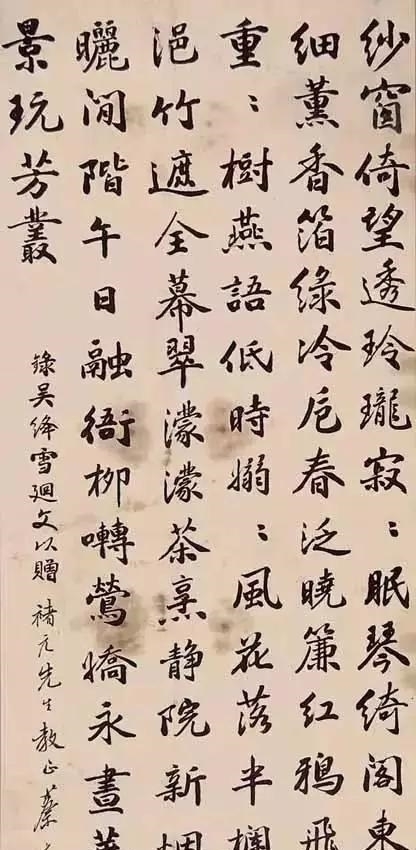 紗窗倚望透玲瓏寂〻眠琴綺閣東
細薰香箔綠冷卮春泛曉簾紅鴉飛
重〻樹燕語低時嫋〻風花落半欄
浥竹遮全幕翠濛濛茶烹静院新烟
曬閒階午日融衙柳囀鶯嬌永晝
景玩芳叢
錄吴絳雪迴文以贈 褚元先生教正 蔡